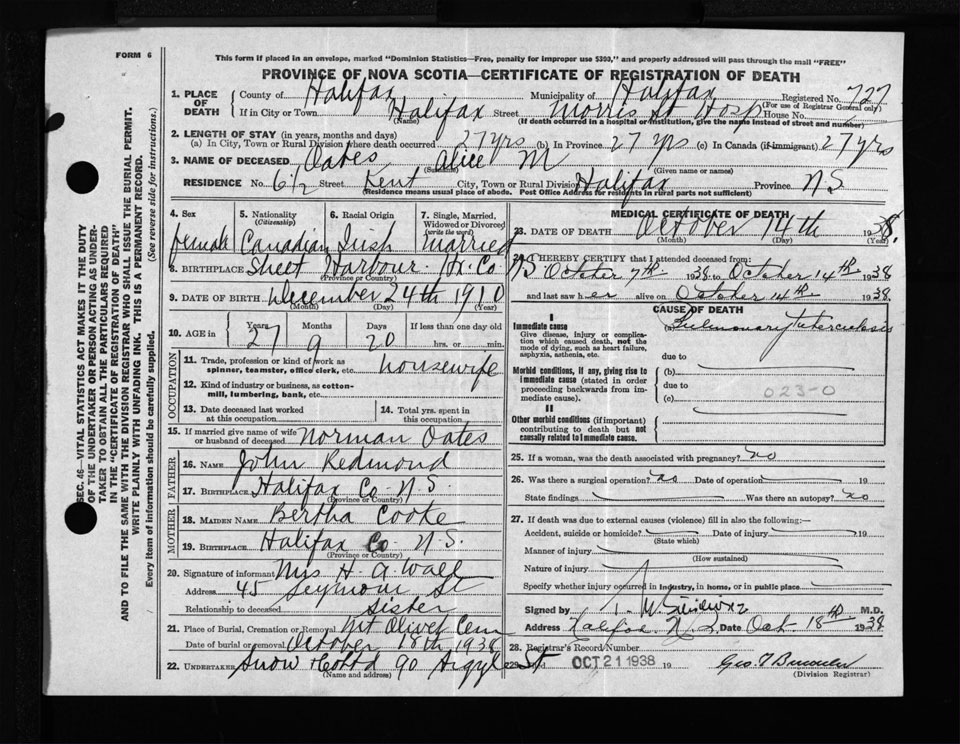 FORM 6
This form if placed in an envelope, marked "Dominion Statistics—Free, penalty for improper use $300," and properly addressed will pass through the mail "FREE"
PROVINCE OF NOVA SCOTIA—CERTIFICATE OF REGISTRATION OF DEATH
1. PLACE OF DEATH
County of Halifax Municipality of Halifax Registered No. 727
(For use of Registrar General only)
If in City or Town Halifax Street Morris St Hosp House No.
(Name) (If death occurred in a hospital or institution, give the name instead of street and number)
2. LENGTH OF STAY (in years, months and days)
(a) In City, Town or Rural Division where death occurred 27 yrs (b) In Province 27 yrs (c) In Canada (if immigrant) 27 yrs
3. NAME OF DECEASED Oates Alice M
(Surname) (Given name or names)
RESIDENCE No. 6½ Street Kent City, Town or Rural Division Halifax Province N.S
(Residence means usual place of abode. Post Office Address for residents in rural parts not sufficient)
4. Sex female
5. Nationality (Citizenship) Canadian
6. Racial Origin Irish
7. Single, Married, Widowed or Divorced (write the word) married
8. BIRTHPLACE Sheet Harbour Hx. Co. NS
(Province or Country)
9. DATE OF BIRTH December 24th 1910
(Month) (Day) (Year)
10. AGE in Years 27 Months 9 Days 20 If less than one day old hrs. or min.
OCCUPATION
11. Trade, profession or kind of work as spinner, teamster, office clerk, etc. housewife
12. Kind of industry or business, as cotton-mill, lumbering, bank, etc.
13. Date deceased last worked at this occupation
14. Total yrs. spent in this occupation
15. If married give name of wife or husband of deceased Norman Oates
FATHER
16. NAME John Redmond
17. BIRTHPLACE Halifax Co N.S.
(Province or Country)
MOTHER
18. MAIDEN NAME Bertha Cooke
19. BIRTHPLACE Halifax Co. N.S.
(Province or Country)
20. Signature of informant Mrs H. A. Wall
Address 45 Seymour St
Relationship to deceased Sister
21. Place of Burial, Cremation or Removal Mt Olivet Cem
Date of burial or removal October 1938
22. UNDERTAKER Snow & Co Ltd 90 Argyle St
(Name and address)
MEDICAL CERTIFICATE OF DEATH
23. DATE OF DEATH October 14th 1938
(Month) (Day) (Year)
24. I HEREBY CERTIFY that I attended deceased from:
October 7th 1938 to October 14th 1938
and last saw her alive on October 14th 1938.
CAUSE OF DEATH
I
Immediate cause
Give disease, injury or complication which caused death, not the mode of dying, such as heart failure, asphyxia, asthenia, etc.
(a) Pulmonary Tuberculosis
due to
Morbid conditions, if any, giving rise to immediate cause (stated in order proceeding backwards from immediate cause).
(b)
due to
023-0
(c)
II
Other morbid conditions (if important) contributing to death but not causally related to immediate cause.
25. If a woman, was the death associated with pregnancy? no
26. Was there a surgical operation? no Date of operation 19
State findings Was there an autopsy? no
27. If death was due to external causes (violence) fill in also the following:—
Accident, suicide or homicide? Date of injury 19
(State which)
Manner of injury
(How sustained)
Nature of injury
Specify whether injury occurred in industry, in home, or in public place
Signed by M.D.
Address Halifax N.S. Date Oct. 18th 1938
28. Registrar's Record Number
Filed OCT 21 1938 19
(Division Registrar)
SEC. 46—VITAL STATISTICS ACT MAKES IT THE DUTY
OF THE UNDERTAKER OR PERSON ACTING AS UNDERTAKER TO OBTAIN ALL THE PARTICULARS REQUIRED
IN THE "CERTIFICATE OF REGISTRATION OF DEATH"
AND TO FILE THE SAME WITH THE DIVISION REGISTRAR WHO SHALL ISSUE THE BURIAL PERMIT.
WRITE PLAINLY WITH UNFADING INK. THIS IS A PERMANENT RECORD.
Every item of information should be carefully supplied. (See reverse side for instructions.)